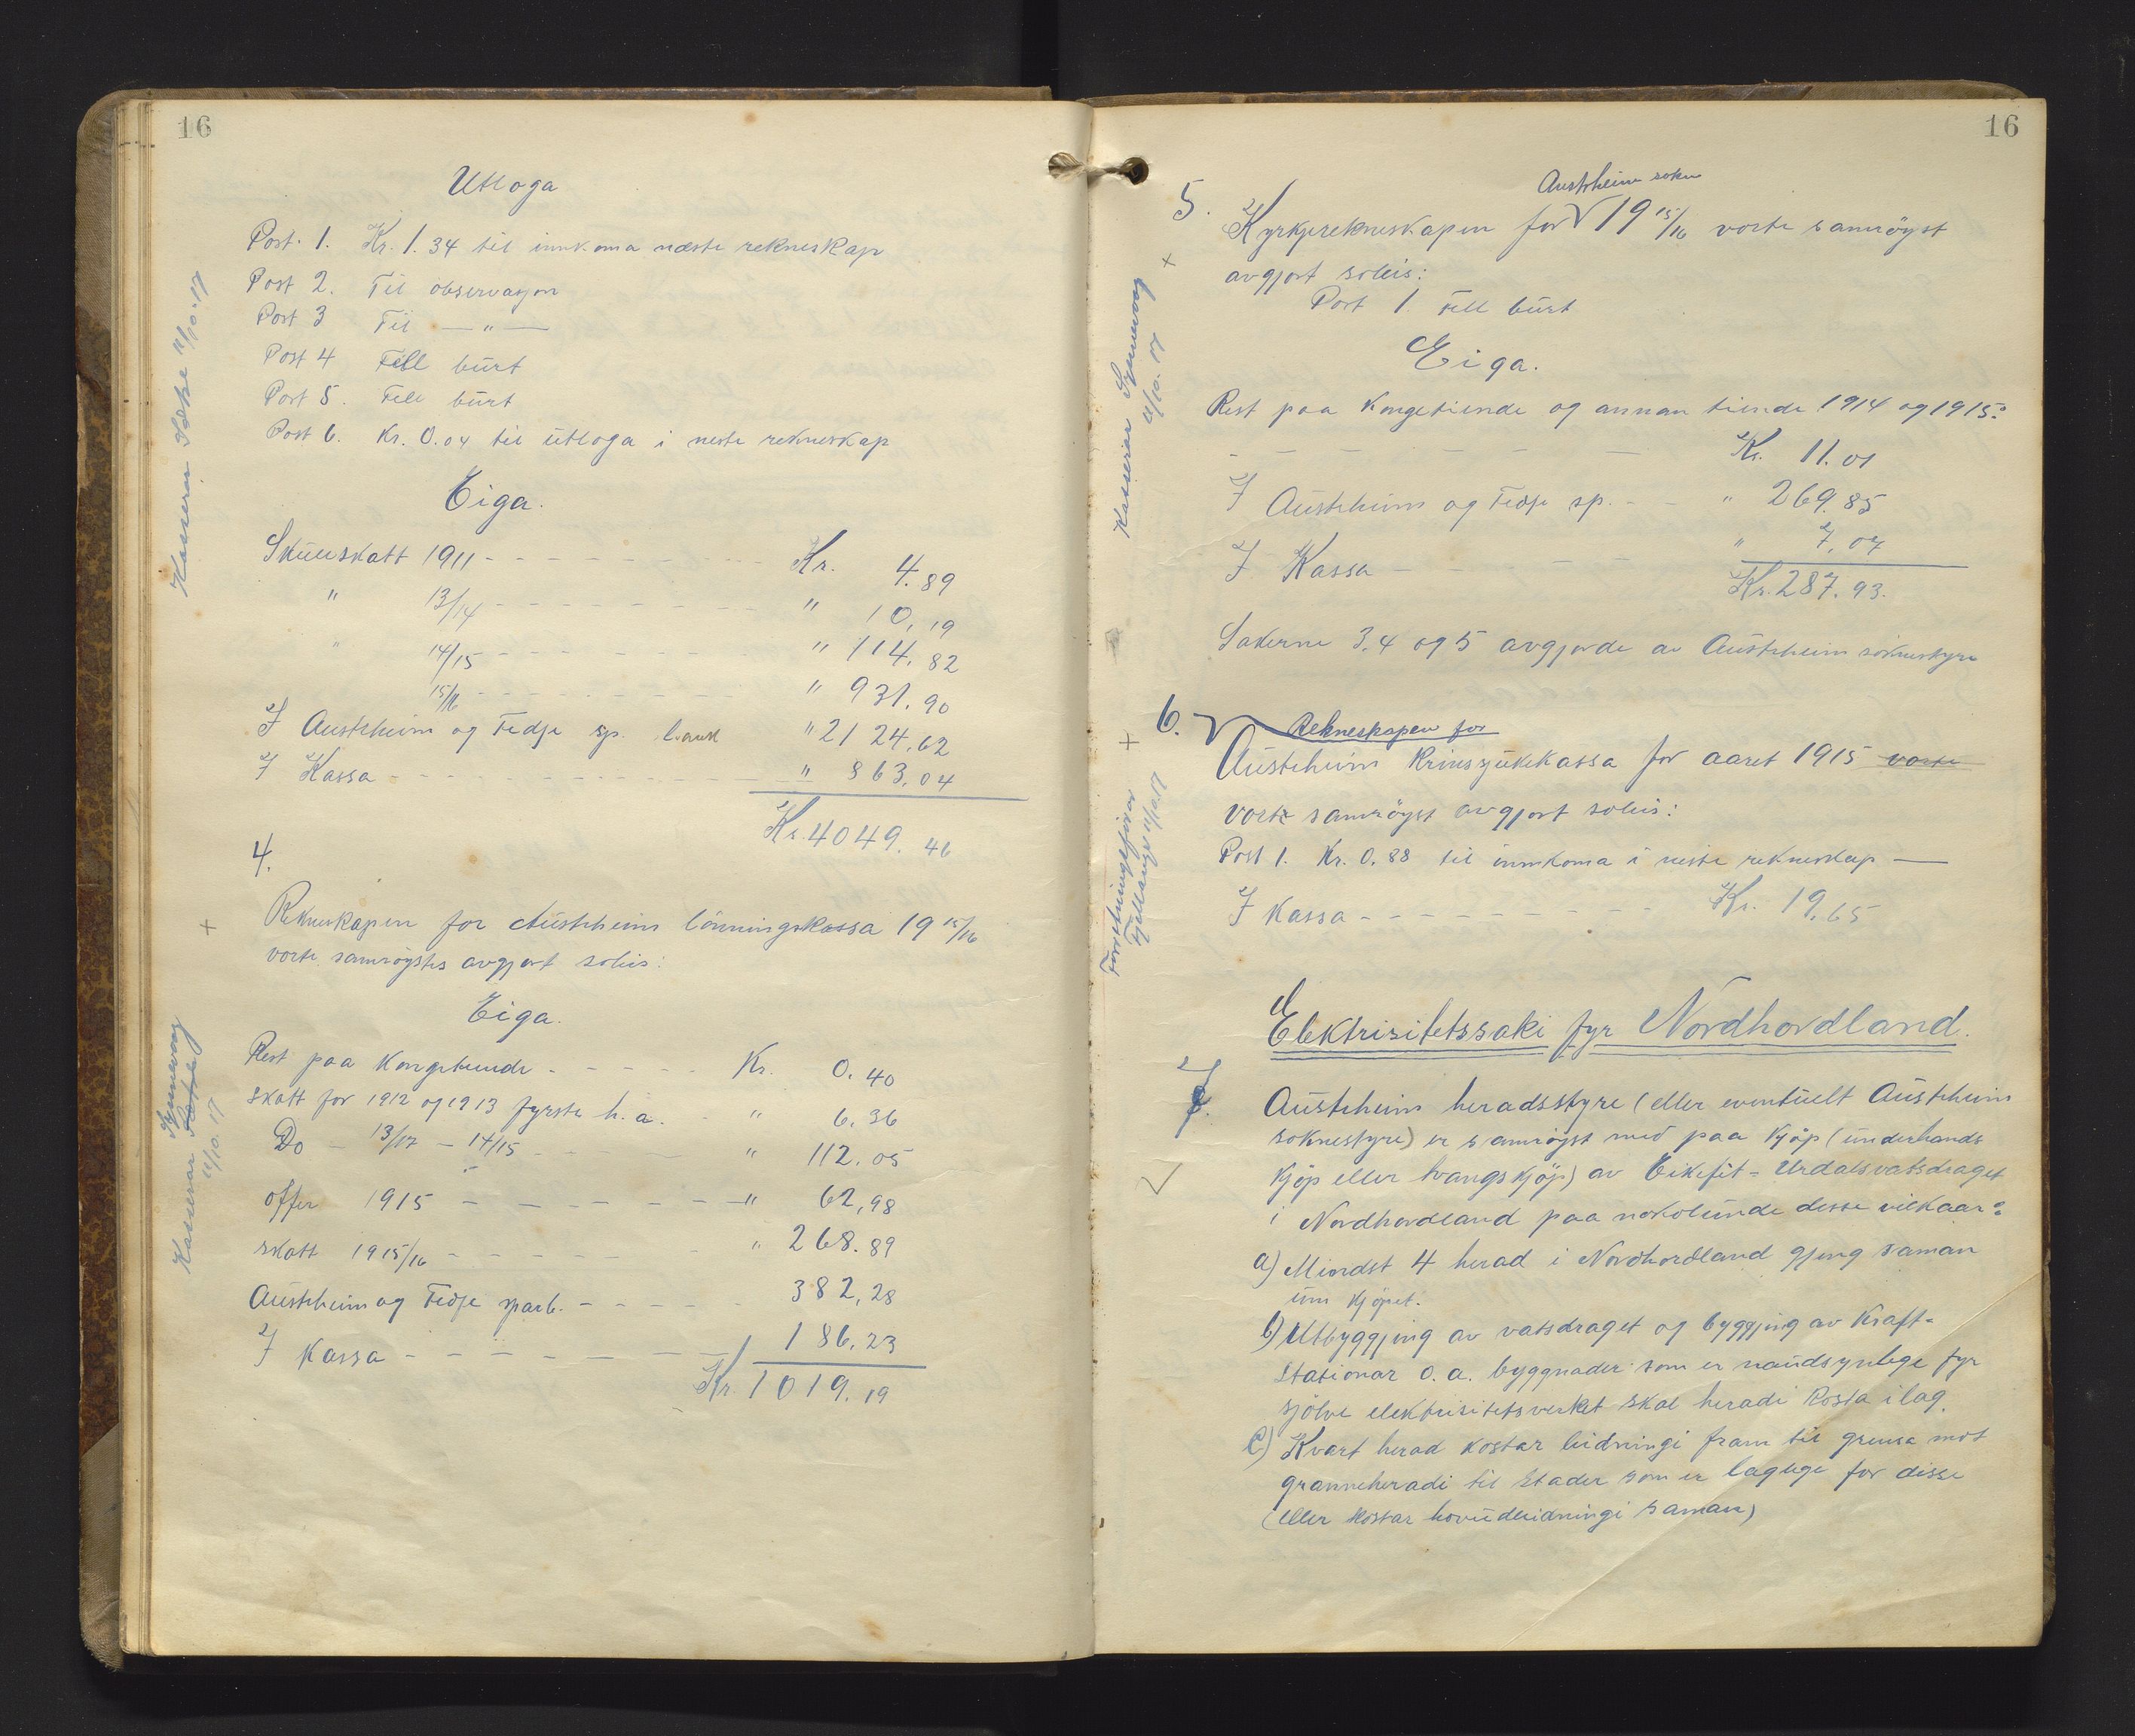 16
Utloga
Post 1. Kr. 1.34 til innkoma næste rekneskap
Post 2. Til observasjon
Post 3 Til — " —
Post 4 Fell burt
Post 5. Fell burt
Post 6. Kr. 0.04 til utloga i neste rekneskap
Eiga.
Skuleskatt 1911 - - - Kr. 4.89
" 13/14 - - - " 10,19
" 14/15 - - - " 114,82
15/16 - - - " 931.90
I Austrheim og Fedje sp. bank " 2124.62
I Kassa - - - " 863.04
Kr. 4049.46
Kasserar 11/10.17
4.
Rekneskapen for Austrheims lönningskassa 19 15/16
vorte samrøystes avgjort soleis:
Eiga.
Rest paa Kongetiende - - - Kr. 0.40
Skatt for 1912 og 1913 fyrste h.a. - " 6.36
Do - 13/14 - 14/15 - - - " 112.05
offer 1915 - - - " 62,98
skatt 1915/16 - - - " 268.89
Austrheim og Fedje sparb. - - - 382,28
I Kassa - - - 186.23
Kr. 1019.19
Kasserar Synnevaag
11/10.17
16
5. Kyrkjerekneskapen for Austrheim sokn 19 15/16 vorte samröyst
avgjort soleis:
Post 1. Fell burt
Eiga.
Rest paa Kongetiende og annan tiende 1914 og 1915:
- - - Kr. 11.01
I Austrheim og Fedje sp. - - " 269.85
I Kassa - - - " 7.07
Kr. 287.93.
Kasserar Synnevaag
11/10.17
Sakerne 3, 4 og 5 avgjorde av Austrheim soknestyre
6. Rekneskapen for
Austrheim Krinssjukekassa for aaret 1915 vorte
vorte samröyst avgjort soleis:
Post 1. Kr. 0.88 til innkoma i neste rekneskap —
I Kassa - - - Kr. 19.65
Forretningsförar
Fjellanger 11/10.17
Elektrisitetssaki fyr Nordhordland.
7. Austrheim heradsstyre (eller eventuelt Austrheim
soknestyre) er samröyst med paa kjöp (underhands
kjöp eller tvangskjöp) av Eikefit-Urdalsvatsdraget
i Nordhordland paa nokolunde desse vilkaar:
a) Mindst 4 herad i Nordhordland gjeng saman
um kjöpet.
b) Utbyggjing av vatsdraget og byggjing av Kraft-
stationar o.a. byggnader som er naudsynlege fyr
sjölve elektrisitetsverket skal heradi kosta ilag.
c) Kvart herad kostar leidningi fram til grensa mot
granneheradi til stader som er laglege for disse
(eller kostar hovudleidningi saman)